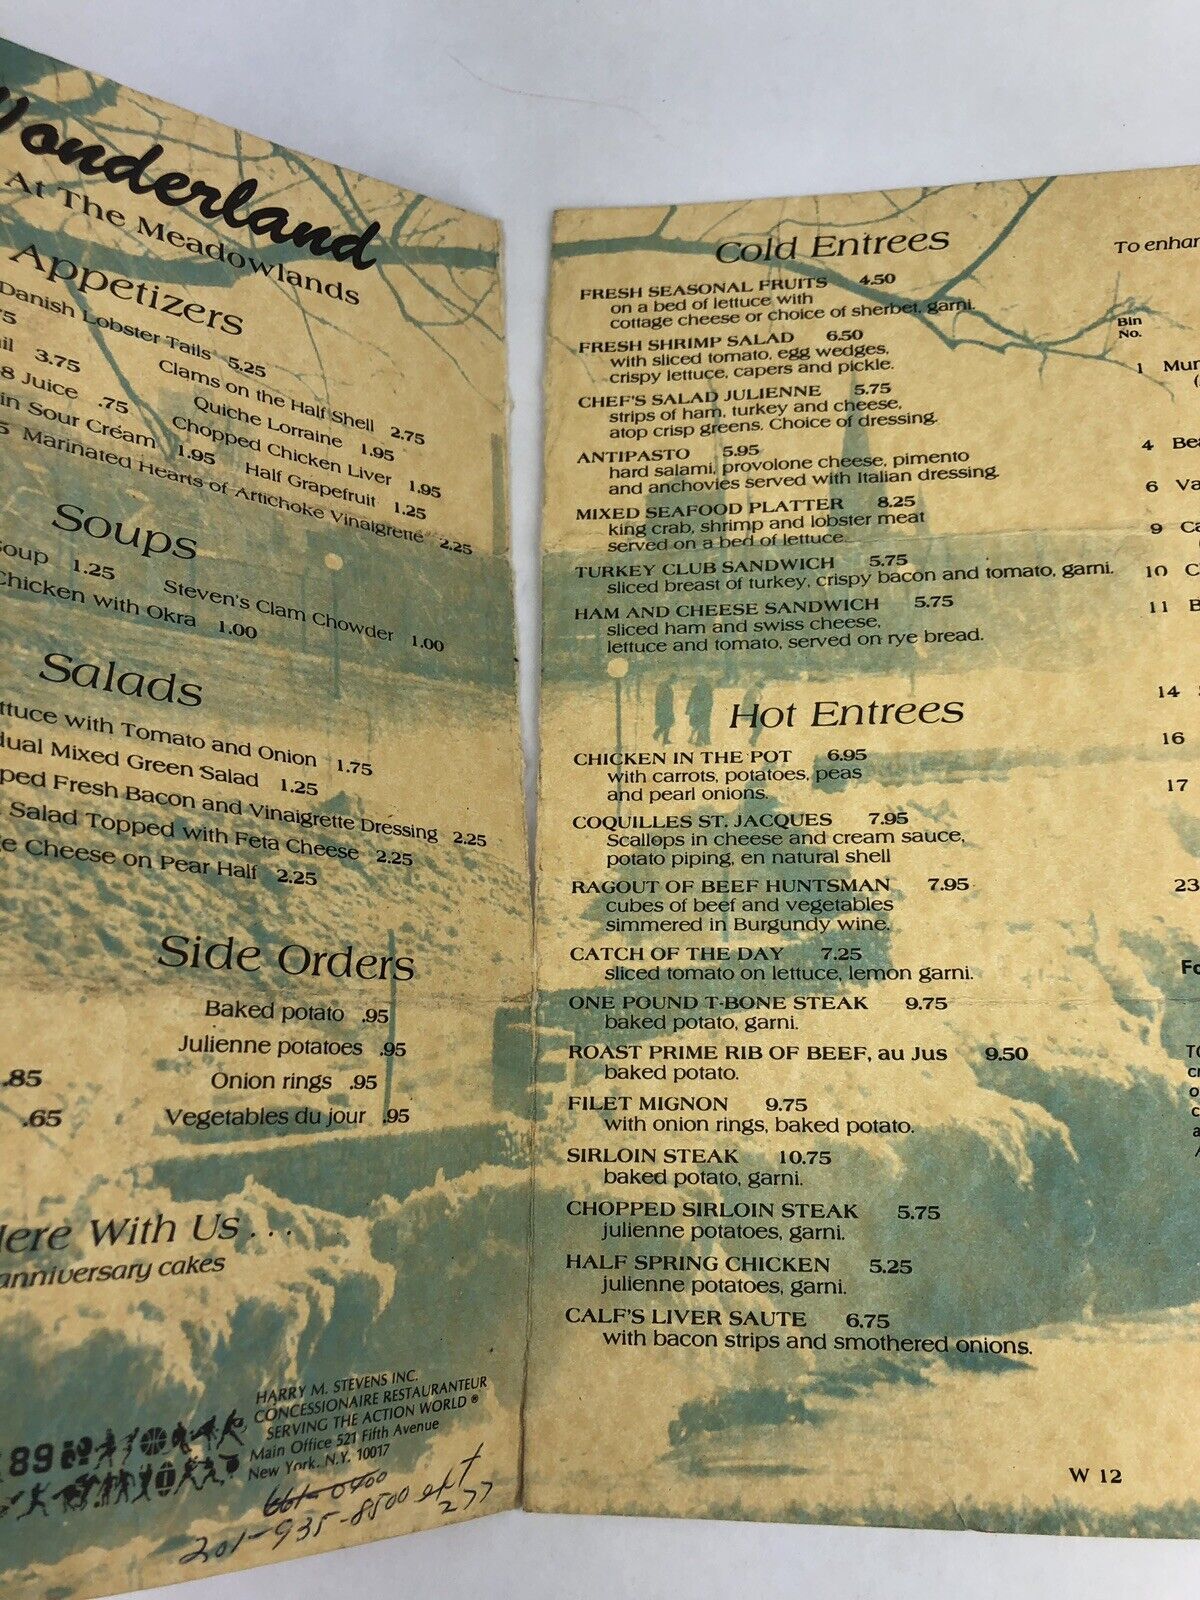 Wonderland
At The Meadowlands
Appetizers
Danish Lobster Tails 5.25
Clams on the Half Shell 2.75
3.75
Quiche Lorraine 1.95
8 Juice .75
Chopped Chicken Liver 1.95
in Sour Cream 1.95 Half Grapefruit 1.25
Marinated Hearts of Artichoke Vinaigrette 2.25
Soups
Soup 1.25 Steven's Clam Chowder 1.00
Chicken with Okra 1.00
Salads
with Tomato and Onion 1.75
Mixed Green Salad 1.25
Fresh Bacon and Vinaigrette Dressing 2.25
Salad Topped with Feta Cheese 2.25
Cheese on Pear Half 2.25
Side Orders
Baked potato .95
Julienne potatoes .95
.85 Onion rings .95
.65 Vegetables du jour .95
Here With Us...
anniversary cakes
HARRY M. STEVENS INC.
CONCESSIONAIRE RESTAURANTEUR
SERVING THE ACTION WORLD ®
Main Office 521 Fifth Avenue
New York, N.Y. 10017
89
661-0400
201-935-8500 ext
277
Cold Entrees
FRESH SEASONAL FRUITS 4.50
on a bed of lettuce with
cottage cheese or choice of sherbet, garni.
FRESH SHRIMP SALAD 6.50
with sliced tomato, egg wedges,
crispy lettuce, capers and pickle.
CHEF'S SALAD JULIENNE 5.75
strips of ham, turkey and cheese,
atop crisp greens. Choice of dressing.
ANTIPASTO 5.95
hard salami, provolone cheese, pimento
and anchovies served with Italian dressing.
MIXED SEAFOOD PLATTER 8.25
king crab, shrimp and lobster meat
served on a bed of lettuce.
TURKEY CLUB SANDWICH 5.75
sliced breast of turkey, crispy bacon and tomato, garni.
HAM AND CHEESE SANDWICH 5.75
sliced ham and swiss cheese,
lettuce and tomato, served on rye bread.
Hot Entrees
CHICKEN IN THE POT 6.95
with carrots, potatoes, peas
and pearl onions.
COQUILLES ST. JACQUES 7.95
Scallops in cheese and cream sauce,
potato piping, en natural shell
RAGOUT OF BEEF HUNTSMAN 7.95
cubes of beef and vegetables
simmered in Burgundy wine.
CATCH OF THE DAY 7.25
sliced tomato on lettuce, lemon garni.
ONE POUND T-BONE STEAK 9.75
baked potato, garni.
ROAST PRIME RIB OF BEEF, au Jus 9.50
baked potato.
FILET MIGNON 9.75
with onion rings, baked potato.
SIRLOIN STEAK 10.75
baked potato, garni.
CHOPPED SIRLOIN STEAK 5.75
julienne potatoes, garni.
HALF SPRING CHICKEN 5.25
julienne potatoes, garni.
CALF'S LIVER SAUTE 6.75
with bacon strips and smothered onions.
W 12
To
Bin
No.
1
4
6
9
10
11
14
16
17
23